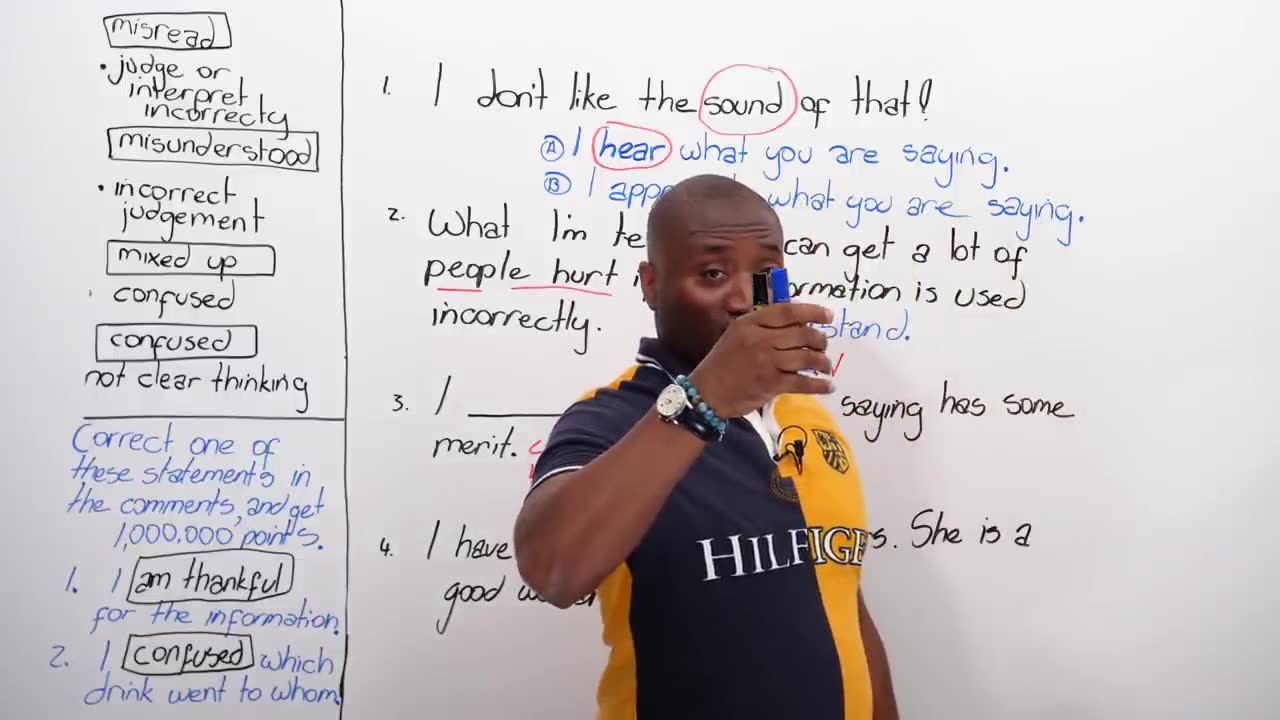 misread
• judge or
interpret
incorrecty
misunderstood
• incorrect
judgement
mixed up
confused
confused
not clear thinking
Correct one of
these statements in
the comments, and get
1,000,000 points.
1. I am thankful
for the information.
2. I confused which
drink went to whom.
1. I don't like the sound of that!
A I hear what you are saying.
B I what you are saying.
2. What I'm can get a lot of
people hurt is used
incorrectly.
3. I saying has some
merit.
4. I have She is a
good
HILFIGER